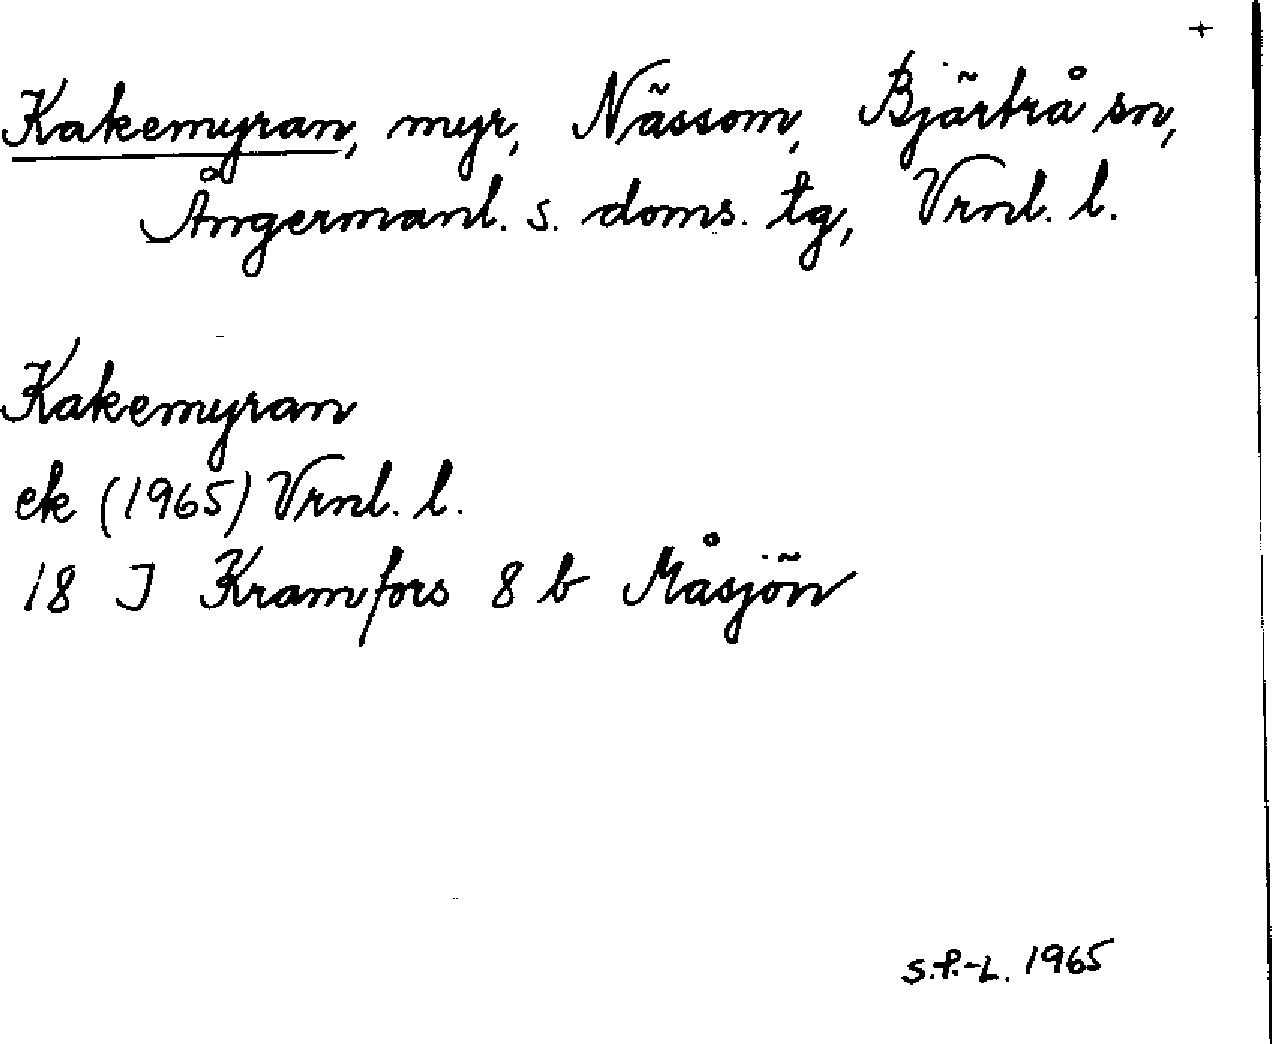 +
Kakemyran, myr, Nässom, Bjärtrå sn,
Ångermanl. s. doms. tg, Vrnl. l.
Kakemyran
ek (1965) Vrnl. l.
18 J Kramfors 8 b Måsjön
S.P.-L. 1965